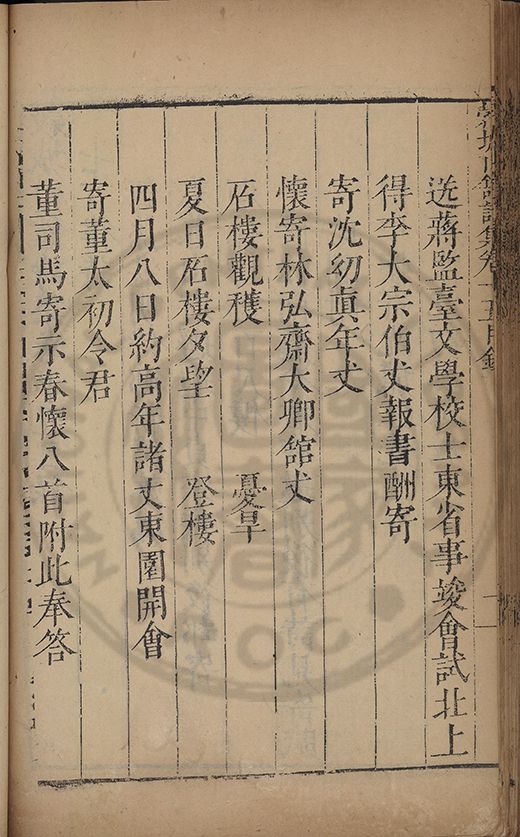 送蔣監臺文學校士東省事竣會試北上
得李大宗伯丈報書酬寄
寄沈幼眞年丈
懷寄林弘齋大卿館丈
石樓觀穫 憂旱
夏日石樓夕望 登樓
四月八日約高年諸丈東園開會
寄董太初令君
董司馬寄示春懷八首附此奉答